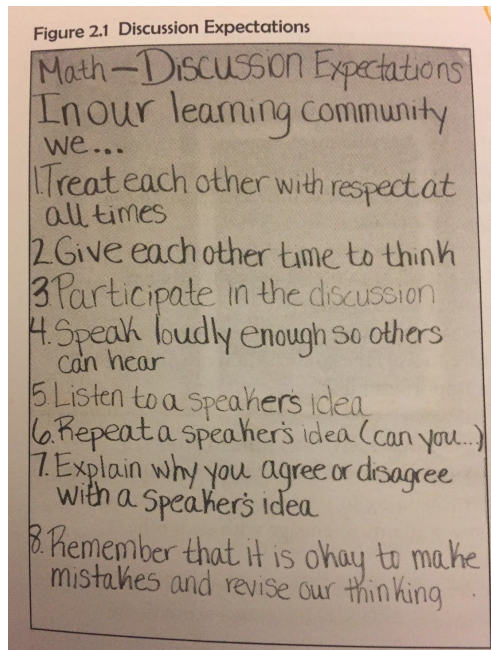 Figure 2.1 Discussion Expectations
Math—Discussion Expectations
In our learning community
we...
1. Treat each other with respect at
all times
2. Give each other time to think
3 Participate in the discussion
4. Speak loudly enough so others
can hear
5. Listen to a speaker's idea
6. Repeat a speaker's idea (can you...)
7. Explain why you agree or disagree
with a speaker's idea
8. Remember that it is okay to make
mistakes and revise our thinking